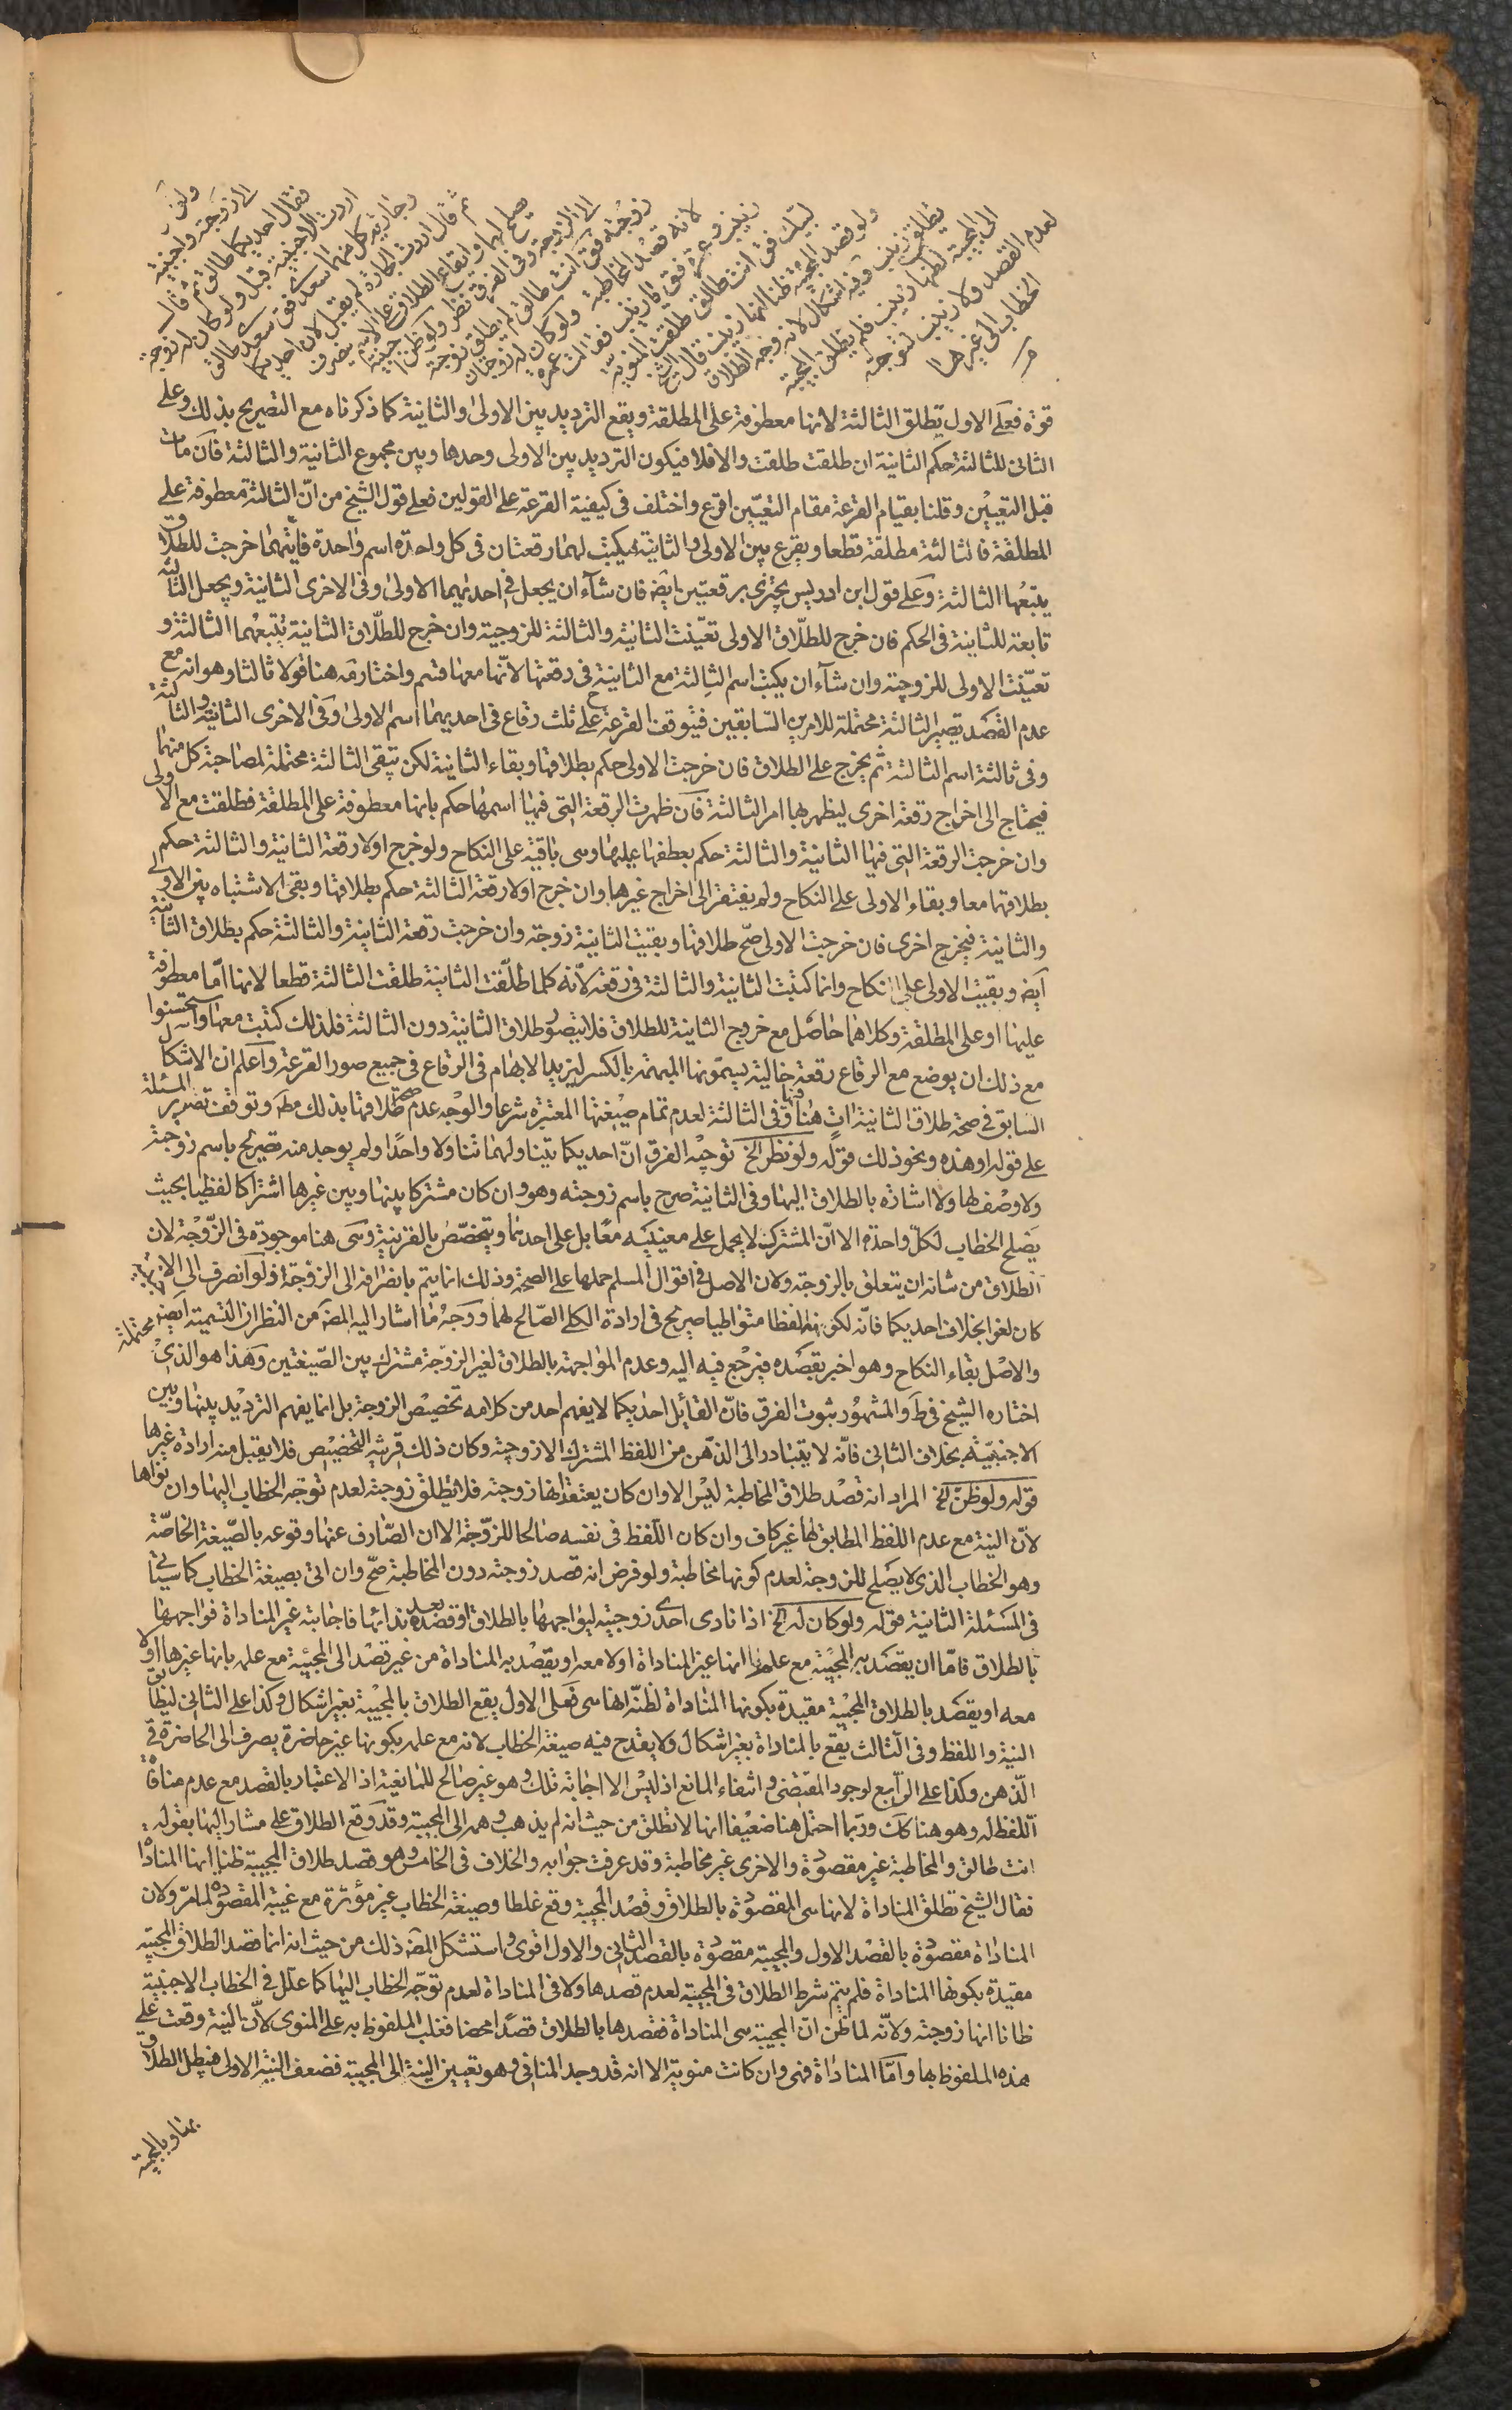 ولو قال
لزوجته واجنبية
فقال احديكما طالق ثم قال
اردت الاجنبية قبل ولو كان له زوجة
وجارية كل منهما سعدى فق سعدى طالق
ثم قال اردت الجارة لم يقبل لان احديكما
يصلح لهما وايقاع الطلاق على الاسم يصرف
الى الزوجة وفى الفرق نظر ولو ظن اجنبية
زوجته فق انت طالق لم يطلق زوجته
لانه قصد المخاطبة ولو كان له زوجتان
زينب وعمرة فق يا زينب فقالت عمرة
لبيك فق انت طالق طلقت المنوية
ولو قصد المجيبة ظنا انها زينب قال الشيخ
تطلق زينب وفيه اشكال لانه وجه الطلاق
الى المجيبة لظنها زينب فلم يطلق المجيبة
لعدم القصد ولا زينب لتوجه
الخطاب الى غيرها
قوة فعلى الاول يطلق الثالثة لانها معطوفة على المطلقة ويقع الترديد بين الاولى والثانية كما ذكرناه مع التصريح بذلك وعلى
الثانى للثالثة حكم الثانية ان طلقت طلقت والا فلا فيكون الترديد بين الاولى وحدها وبين مجموع الثانية والثالثة فان مات
قبل التعيين وقلنا بقيام القرعة مقام التعيين اقرع واختلف فى كيفية القرعة على القولين فعلى قول الشيخ من انّ الثالثة معطوفة على
المطلقة فالثالثة مطلقة قطعا ويقرع بين الاولى والثانية فيكتب لهما رقعتان فى كل واحدة اسم واحدة فايتهما خرجت للطلاق
يتبعها الثالثة وعلى قول ابن ادريس يجتزى برقعتين ايض فان شآء ان يجعل فى احديهما الاولى وفى الاخرى الثانية ويجعل الثالثة
تابعة للثانية فى الحكم فان خرج للطلاق الاولى تعيّنت الثانية والثالثة للزوجية وان خرج للطلاق الثانية يتبعهما الثالثة و
تعيّنت الاولى للزوجية وان شآء ان يكتب اسم الثالثة مع الثانية فى رقعتها لانّها معها قسم واختار فه هنا قولا ثالثا وهو انه مع
عدم القصد تصير الثالثة محتملة للامرين السّابقين فيتوقف القرعة على ثلث رقاع فى احديهما اسم الاولى وفى الاخرى الثانية والثالثة
وفى ثالثة اسم الثالثة ثم يخرج على الطلاق فان خرجت الاولى حكم بطلاقها وبقاء الثانية لكن تبقى الثالثة محتملة لمصاحبة كل منهما
فيحتاج الى اخراج رقعة اخرى ليظهر بها امر الثالثة فان ظهرت الرقعة التى فيها اسمها حكم بانها معطوفة على المطلقة فطلقت مع الاولى
وان خرجت الرقعة التى فيها الثانية والثالثة حكم بعطفها عليها وهى باقية على النكاح ولو خرج اولا رقعة الثانية والثالثة حكم
بطلاقهما معا وبقاء الاولى على النكاح ولم يفتقر الى اخراج غيرها وان خرج اولا رقعة الثالثة حكم بطلاقها وبقى الاشتباه بين الاولى
والثانية فيخرج اخرى فان خرجت الاولى صحّ طلاقها وبقيت الثانية زوجة وان خرجت رقعة الثانية والثالثة حكم بطلاق الثانية
ايض وبقيت الاولى على النكاح وانما كتبت الثانية والثالثة فى رقعة لانّه كلما طلّقت الثانية طلقت الثالثة قطعا لانها امّا معطوفة
عليها او على المطلقة وكلاهما حاصل مع خروج الثانية للطلاق فلا يتصور طلاق الثانية دون الثالثة فلذلك كتبت معها واستحسنوا
مع ذلك ان يوضع مع الرقاع رقعة خالية يسمّونها المبهمة بالكسر ليزيد الابهام فى الرقاع فى جميع صور القرعة واعلم ان الاشكال
السابق فى صحة طلاق الثانية ات هنا وفى الثالثة لعدم تمام صيغتها المعتبرة شرعا والوجه عدم صحة طلاقها بذلك مط وتوقف تصوير المسئلة
على قوله او هذه ونحو ذلك قوله ولو نظر الخ توجيه الفرق انّ احديكما يتناولهما تناولا واحدا ولم يوجد منه تصريح باسم زوجته
ولا وصف لها ولا اشارة بالطلاق اليها وفى الثانية صرح باسم زوجته وهو وان كان مشتركا بينها وبين غيرها اشتراكا لفظيا بحيث
يصلح الخطاب لكلّ واحدة الا انّ المشترك لا يحمل على معنييه معا بل على احدهما ويتخصّص بالقرينة وهى هنا موجودة فى الزّوجة لان
الطلاق من شانه ان يتعلق بالزوجة ولان الاصل فى اقوال المسلم حملها على الصحة وذلك انما يتم بانصرافه الى الزوجة ولو انصرف الى الاجنبية
كان لغوا بخلاف احديكما فانّه لكونه لفظا متواطيا صريح فى ارادة الكلى الصّالح لهما ووجه ما اشار اليه المصّ من النظر ان التسمية ايضا محتملة
والاصل بقاء النكاح وهو اخبر بقصده فيرجع فيه اليه وعدم المواجهة بالطلاق لغير الزوجة مشترك بين الصّيغتين وهذا هو الذى
اختاره الشيخ فى ط والمشهور ثبوت الفرق فانّ القائل احديكما لا يفهم احد من كلامه تخصيص الزوجة بل انما يفهم الترديد بينها وبين
الاجنبيّة بخلاف الثانى فانّه لا يتبادر الى الذّهن من اللفظ المشترك الا زوجته وكان ذلك قرينة التخصيص فلا يقبل منه ارادة غيرها
قوله ولو ظنّ الخ المراد انه قصد طلاق المخاطبة ليس الا وان كان يعتقدها زوجته فلا يطلق زوجته لعدم توجّه الخطاب اليها وان نواها
لانّ النية مع عدم اللفظ المطابق لها غير كاف وان كان اللفظ فى نفسه صالحا للزوجة الا ان الصّارف عنها وقوعه بالصّيغة الخاصّة
وهو الخطاب الذى لا يصلح للزوجة لعدم كونها مخاطبة ولو فرض انه قصد زوجته دون المخاطبة صحّ وان اتى بصيغة الخطاب كما سيأتى
فى المسئلة الثانية قوله ولو كان له الخ اذا نادى احدى زوجتيه ليواجهها بالطلاق او قصده بعد ندائها فاجابته غير المناداة فواجهها
بالطلاق فامّا ان يقصد به المجيبة مع علمه انها غير المناداة او لا معه او يقصد به المناداة من غير قصد الى المجيبة مع علمه بانها غيرها او لا
معه او يقصد بالطلاق المجيبة مقيدة بكونها المناداة لظنّه انها هى فعلى الاول يقع الطلاق بالمجيبة بغير اشكال وكذا على الثانى لتطابق
النية واللفظ وفى الثالث يقع بالمناداة بغير اشكال ولا يقدح فيه صيغة الخطاب لانه مع علمه بكونها غير حاضرة يصرف الى الحاضرة فى
الذّهن وكذا على الرّابع لوجود المقتضى وانتفاء المانع اذ ليس الا اجابة تلك وهو غير صالح للمانعية اذ الاعتبار بالقصد مع عدم منافاة
اللفظ له وهو هنا كك وربّما احتمل هنا ضعيفا انها لا تطلق من حيث انه لم يذهب وهمه الى المجيبة وقد وقع الطلاق على مشار اليها بقوله
انت طالق والمخاطبة غير مقصودة والاخرى غير مخاطبة وقد عرفت جوابه والخلاف فى الخامس وهو قصد طلاق المجيبة ظنا انها المناداة
فقال الشيخ تطلق المناداة لانها هى المقصودة بالطلاق وقصد المجيبة وقع غلطا وصيغة الخطاب غير مؤثرة مع غيبة المقصودة لما مرّ ولان
المناداة مقصودة بالقصد الاول والمجيبة مقصودة بالقصد الثانى والاول اقوى واستشكل المصّ ذلك من حيث انه انما قصد الطلاق المجيبة
مقيدة بكونها المناداة فلم يتم شرط الطلاق فى المجيبة لعدم قصدها ولا فى المناداة لعدم توجّه الخطاب اليها كما علّل فى الخطاب الاجنبية
ظانا انها زوجته ولانّه لما ظن انّ المجيبة هى المناداة فقصدها بالطلاق قصدا محضا فغلب الملفوظ به على المنوى لانّ النية وقعت على
هذه الملفوظ بها وامّا المناداة فهى وان كانت منوية الا انه قد وجد المنافى وهو تعيين النية الى المجيبة فضعف النية الاولى فيبطل الطلاق
بهنا وبالمجيبة